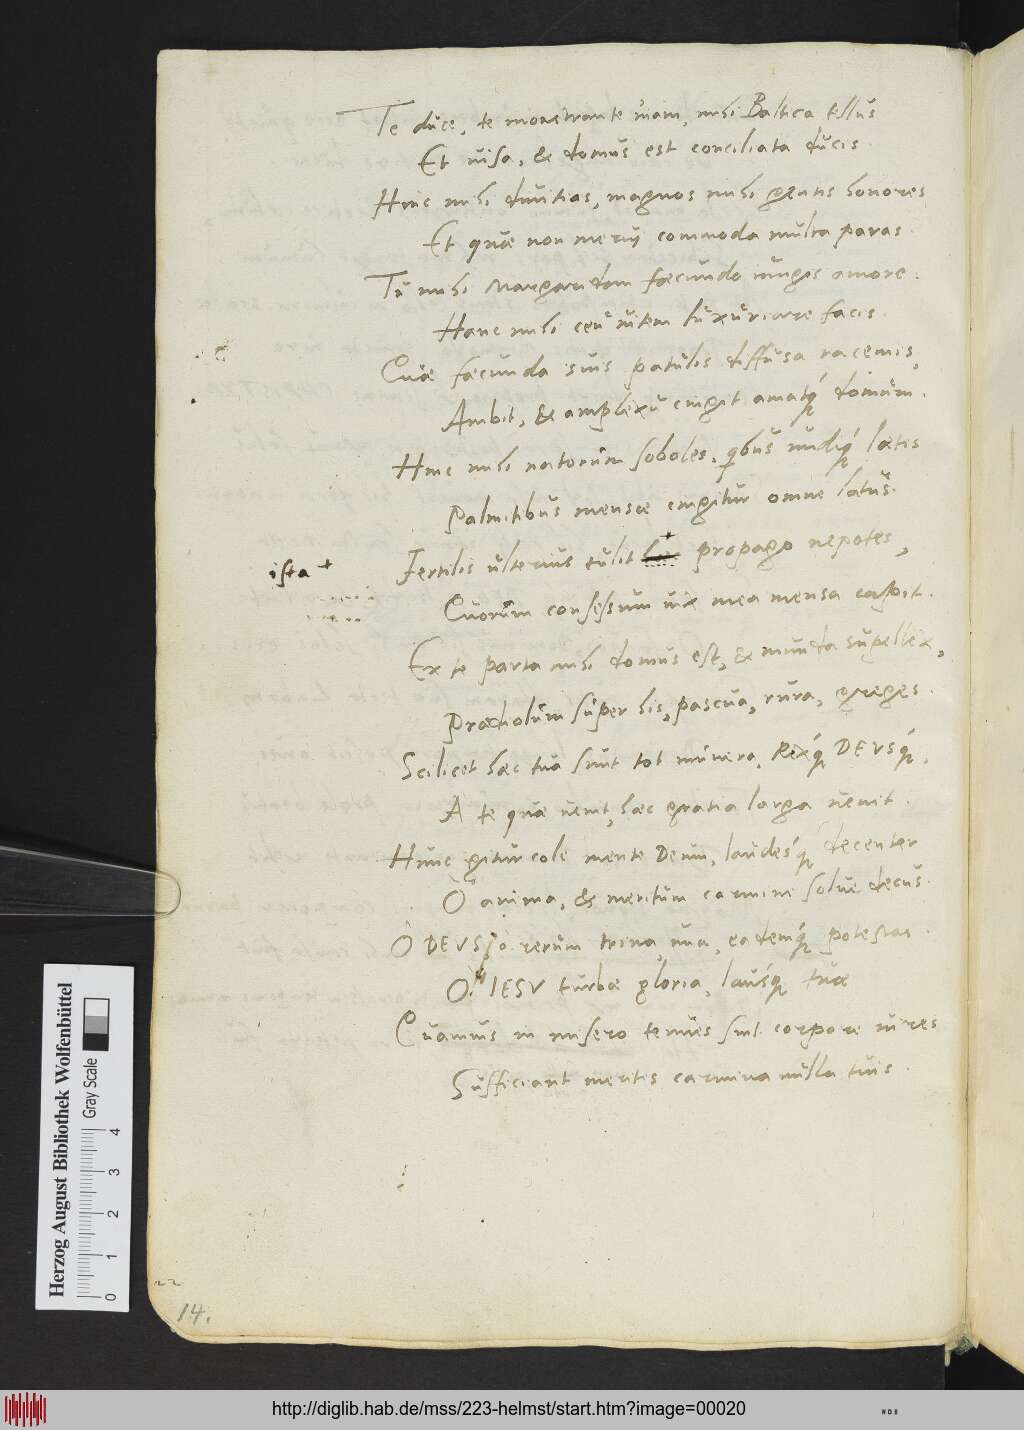 Te duce, te monstrante uiam, mihi Baltica tellus
Et uisa, & domus est conciliata ducis.
Hinc mihi diuitias, magnos mihi gentis honores
Et quæ non merui commoda multa paras.
Tu mihi Margaridem fœcundo iungis amore.
Hanc mihi ceu uitem luxuriare facis.
Quæ fœcunda suis patulis diffusa racemis,
Ambit, & amplexu cingit amatq́ domum.
Hinc mihi natorum soboles, qibus undiq́ lætis
Palmitibus mensæ cingitur omne latus.
ista +
Fertilis ulterius tulit + propago nepotes,
Quorum consessum uix mea mensa capit.
Ex te parta mihi domus est, & munda supellex,
Prædiolum super his, pascua, rura, greges.
Scilicet hæc tua sunt tot munera, Rexq́ DEVSq́,
A te quæ uenit, hæc gratia larga uenit.
Hunc igitur cole mente Deum, laudesq́ decenter
O anima, & meritum carmine solue decus.
O DEVS, o rerum trina, una, eademq́ potestas.
O IESV turbæ gloria, lausq́ tuæ
Quamuis in misero tenues sint corpore uires
Sufficiant meritis carmina nulla tuis.
14.
Herzog August Bibliothek Wolfenbüttel
Gray Scale
0 1 2 3 4
http://diglib.hab.de/mss/223-helmst/start.htm?image=00020